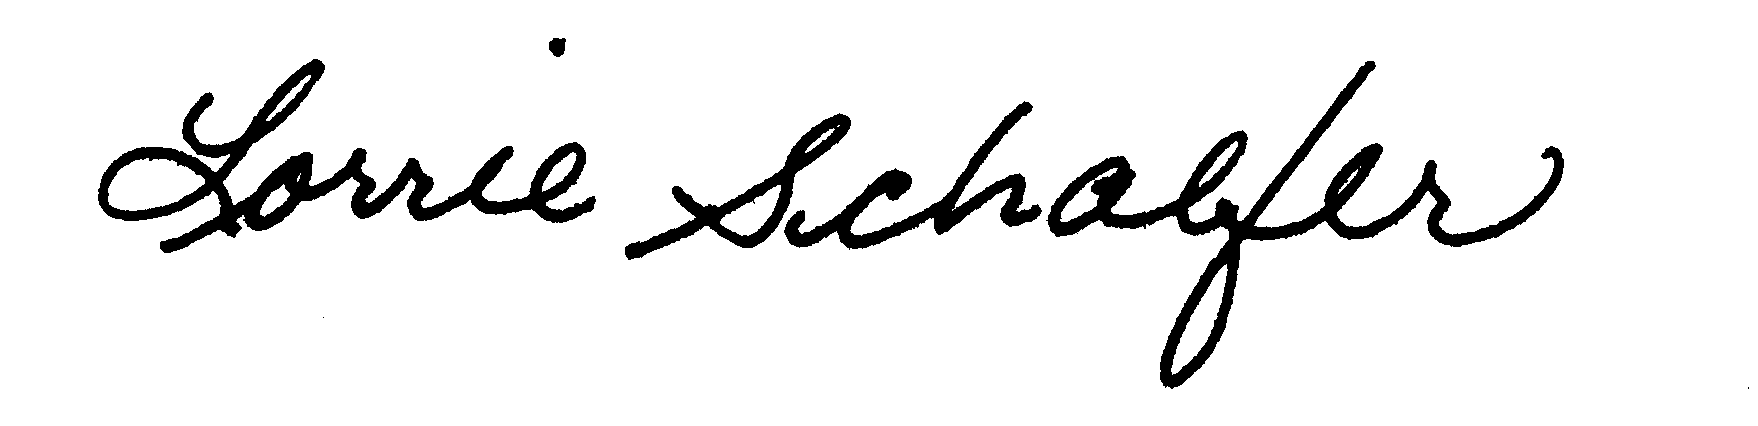 Lorrie Schaefer